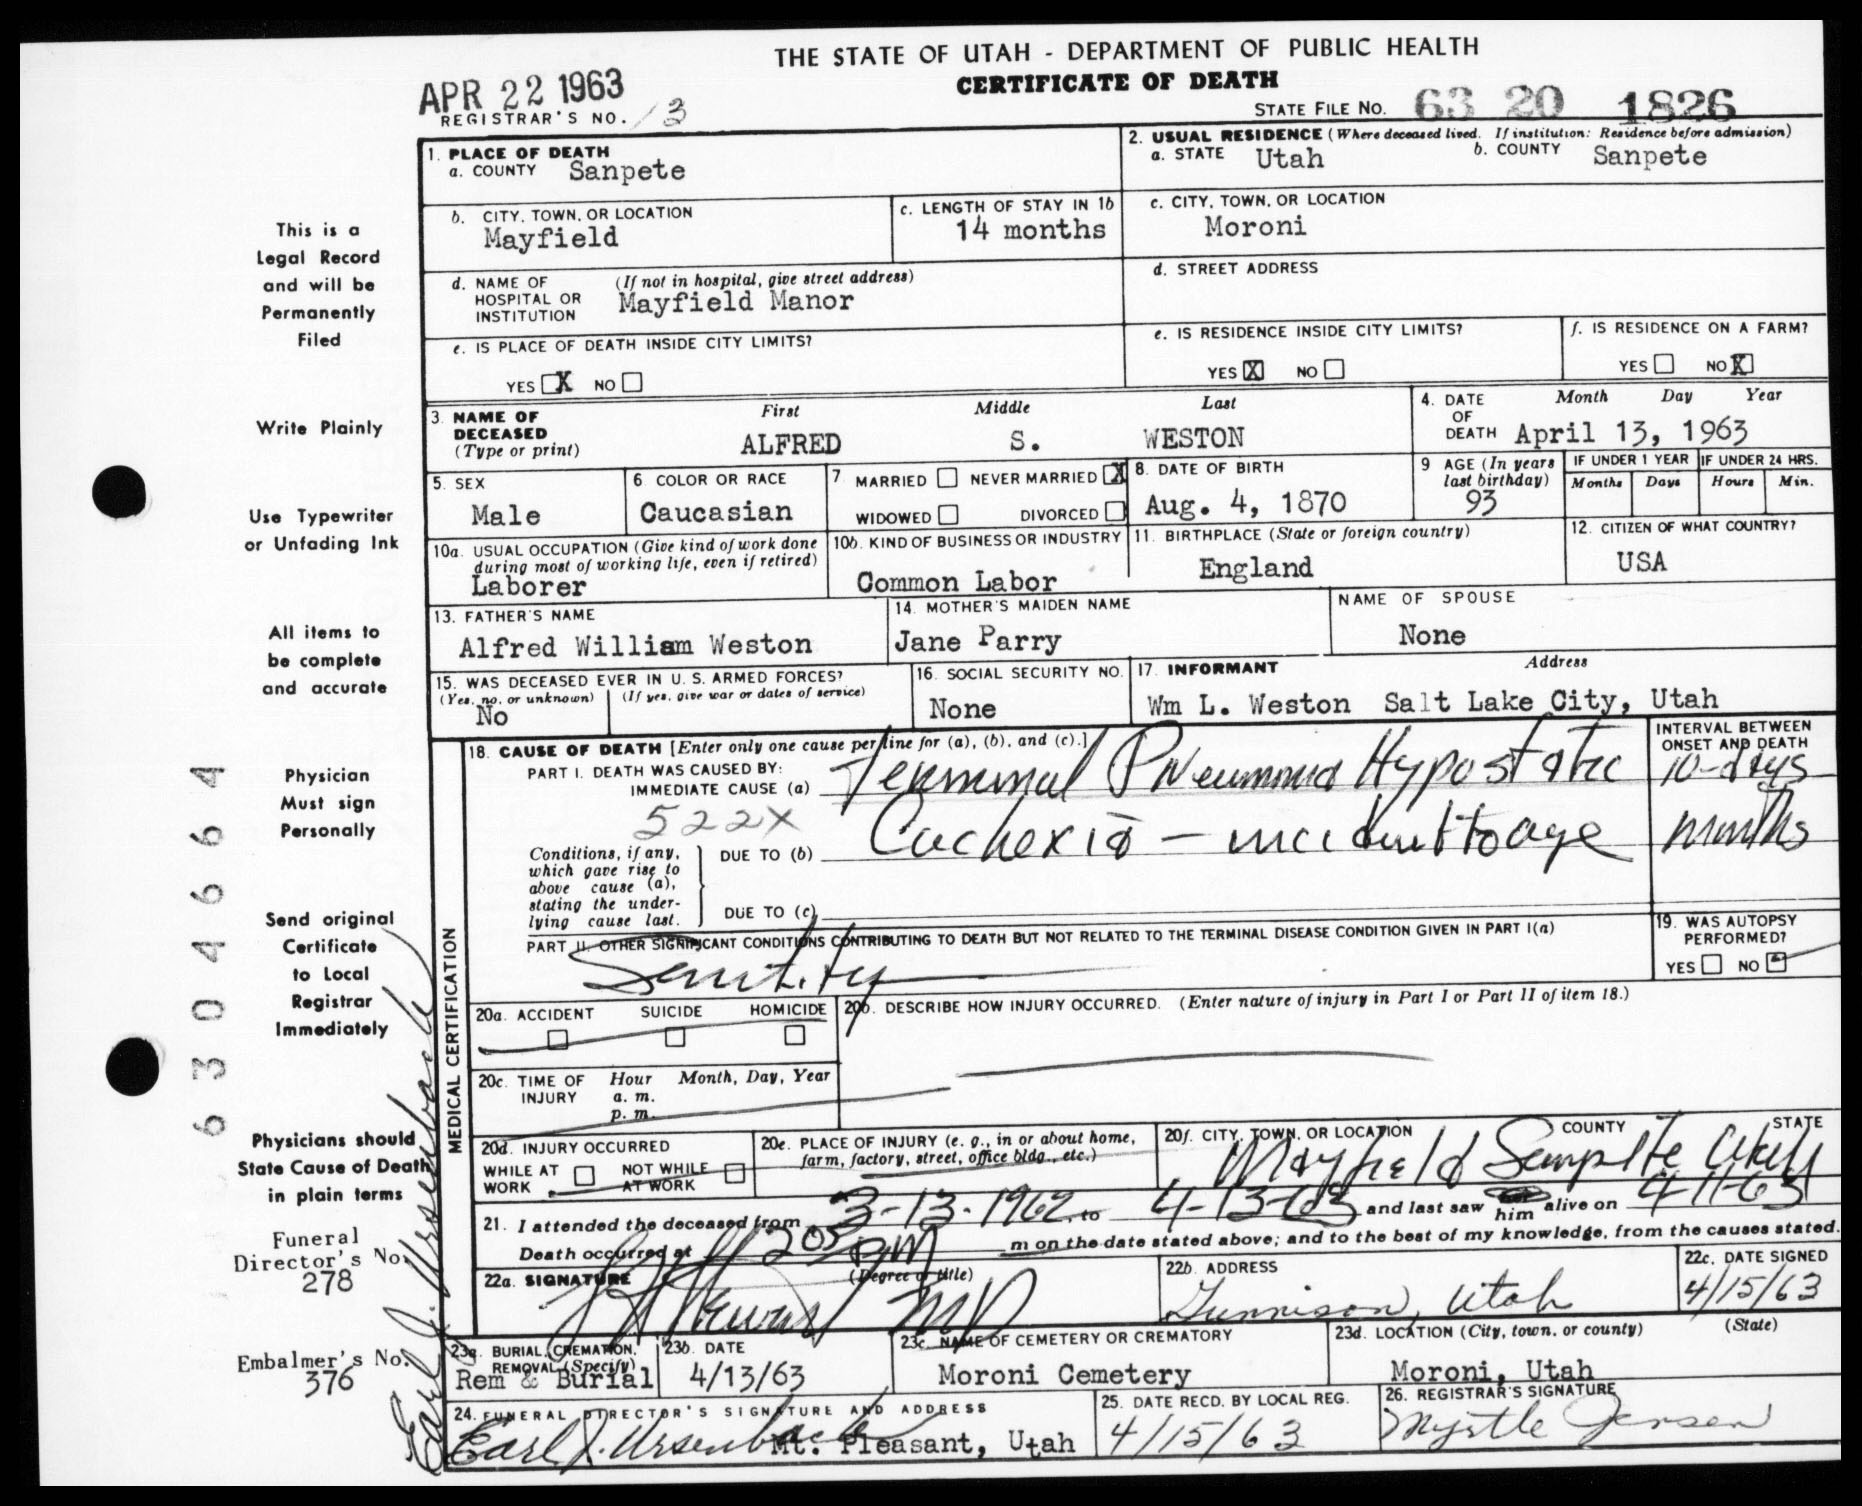 THE STATE OF UTAH - DEPARTMENT OF PUBLIC HEALTH
CERTIFICATE OF DEATH
APR 22 1963
REGISTRAR'S NO. 13
STATE FILE NO. 63 20 1826
1. PLACE OF DEATH
a. COUNTY Sanpete
2. USUAL RESIDENCE (Where deceased lived. If institution: Residence before admission)
a. STATE Utah b. COUNTY Sanpete
b. CITY, TOWN, OR LOCATION
Mayfield
c. LENGTH OF STAY IN 1b
14 months
c. CITY, TOWN, OR LOCATION
Moroni
d. NAME OF HOSPITAL OR INSTITUTION (If not in hospital, give street address)
Mayfield Manor
d. STREET ADDRESS
e. IS PLACE OF DEATH INSIDE CITY LIMITS?
YES X NO
e. IS RESIDENCE INSIDE CITY LIMITS?
YES X NO
f. IS RESIDENCE ON A FARM?
YES NO X
3. NAME OF DECEASED (Type or print)
First Middle Last
ALFRED S. WESTON
4. DATE OF DEATH Month Day Year
April 13, 1963
5. SEX
Male
6. COLOR OR RACE
Caucasian
7. MARRIED NEVER MARRIED X
WIDOWED DIVORCED
8. DATE OF BIRTH
Aug. 4, 1870
9 AGE (In years last birthday)
93
IF UNDER 1 YEAR
Months Days
IF UNDER 24 HRS.
Hours Min.
10a. USUAL OCCUPATION (Give kind of work done during most of working life, even if retired)
Laborer
10b. KIND OF BUSINESS OR INDUSTRY
Common Labor
11. BIRTHPLACE (State or foreign country)
England
12. CITIZEN OF WHAT COUNTRY?
USA
13. FATHER'S NAME
Alfred William Weston
14. MOTHER'S MAIDEN NAME
Jane Parry
NAME OF SPOUSE
None
15. WAS DECEASED EVER IN U. S. ARMED FORCES?
(Yes, no, or unknown) (If yes, give war or dates of service)
No
16. SOCIAL SECURITY NO.
None
17. INFORMANT Address
Wm L. Weston Salt Lake City, Utah
MEDICAL CERTIFICATION
18. CAUSE OF DEATH [Enter only one cause per line for (a), (b), and (c).]
PART I. DEATH WAS CAUSED BY:
IMMEDIATE CAUSE (a) Terminal Pneumonia Hypostatic
INTERVAL BETWEEN ONSET AND DEATH
10-days
522X
Conditions, if any, which gave rise to above cause (a), stating the underlying cause last.
DUE TO (b) Cachexia - incident to age
months
DUE TO (c)
PART II. OTHER SIGNIFICANT CONDITIONS CONTRIBUTING TO DEATH BUT NOT RELATED TO THE TERMINAL DISEASE CONDITION GIVEN IN PART I(a)
Senility
19. WAS AUTOPSY PERFORMED?
YES NO
20a. ACCIDENT SUICIDE HOMICIDE
20b. DESCRIBE HOW INJURY OCCURRED. (Enter nature of injury in Part I or Part II of item 18.)
20c. TIME OF INJURY Hour Month, Day, Year
a. m.
p. m.
20d. INJURY OCCURRED
WHILE AT WORK NOT WHILE AT WORK
20e. PLACE OF INJURY (e. g., in or about home, farm, factory, street, office bldg., etc.)
20f. CITY, TOWN, OR LOCATION COUNTY STATE
Mayfield Sanpete Utah
21. I attended the deceased from 3-13-1962, to 4-13-63 and last saw him alive on 4-11-63
Death occurred at 205 PM m on the date stated above; and to the best of my knowledge, from the causes stated.
22a. SIGNATURE (Degree or title)
MD
22b. ADDRESS
Gunnison, Utah
22c. DATE SIGNED
4/15/63
23a. BURIAL, CREMATION, REMOVAL (Specify)
Rem & Burial
23b. DATE
4/13/63
23c. NAME OF CEMETERY OR CREMATORY
Moroni Cemetery
23d. LOCATION (City, town, or county) (State)
Moroni, Utah
24. FUNERAL DIRECTOR'S SIGNATURE AND ADDRESS
Earl J. Ursenbach Mt. Pleasant, Utah
25. DATE RECD. BY LOCAL REG.
4/15/63
26. REGISTRAR'S SIGNATURE
Myrtle Jensen
This is a
Legal Record
and will be
Permanently
Filed
Write Plainly
Use Typewriter
or Unfading Ink
All items to
be complete
and accurate
Physician
Must sign
Personally
Send original
Certificate
to Local
Registrar
Immediately
Physicians should
State Cause of Death
in plain terms
Funeral
Director's No.
278
Embalmer's No.
376
6304664
Earl J. Ursenbach